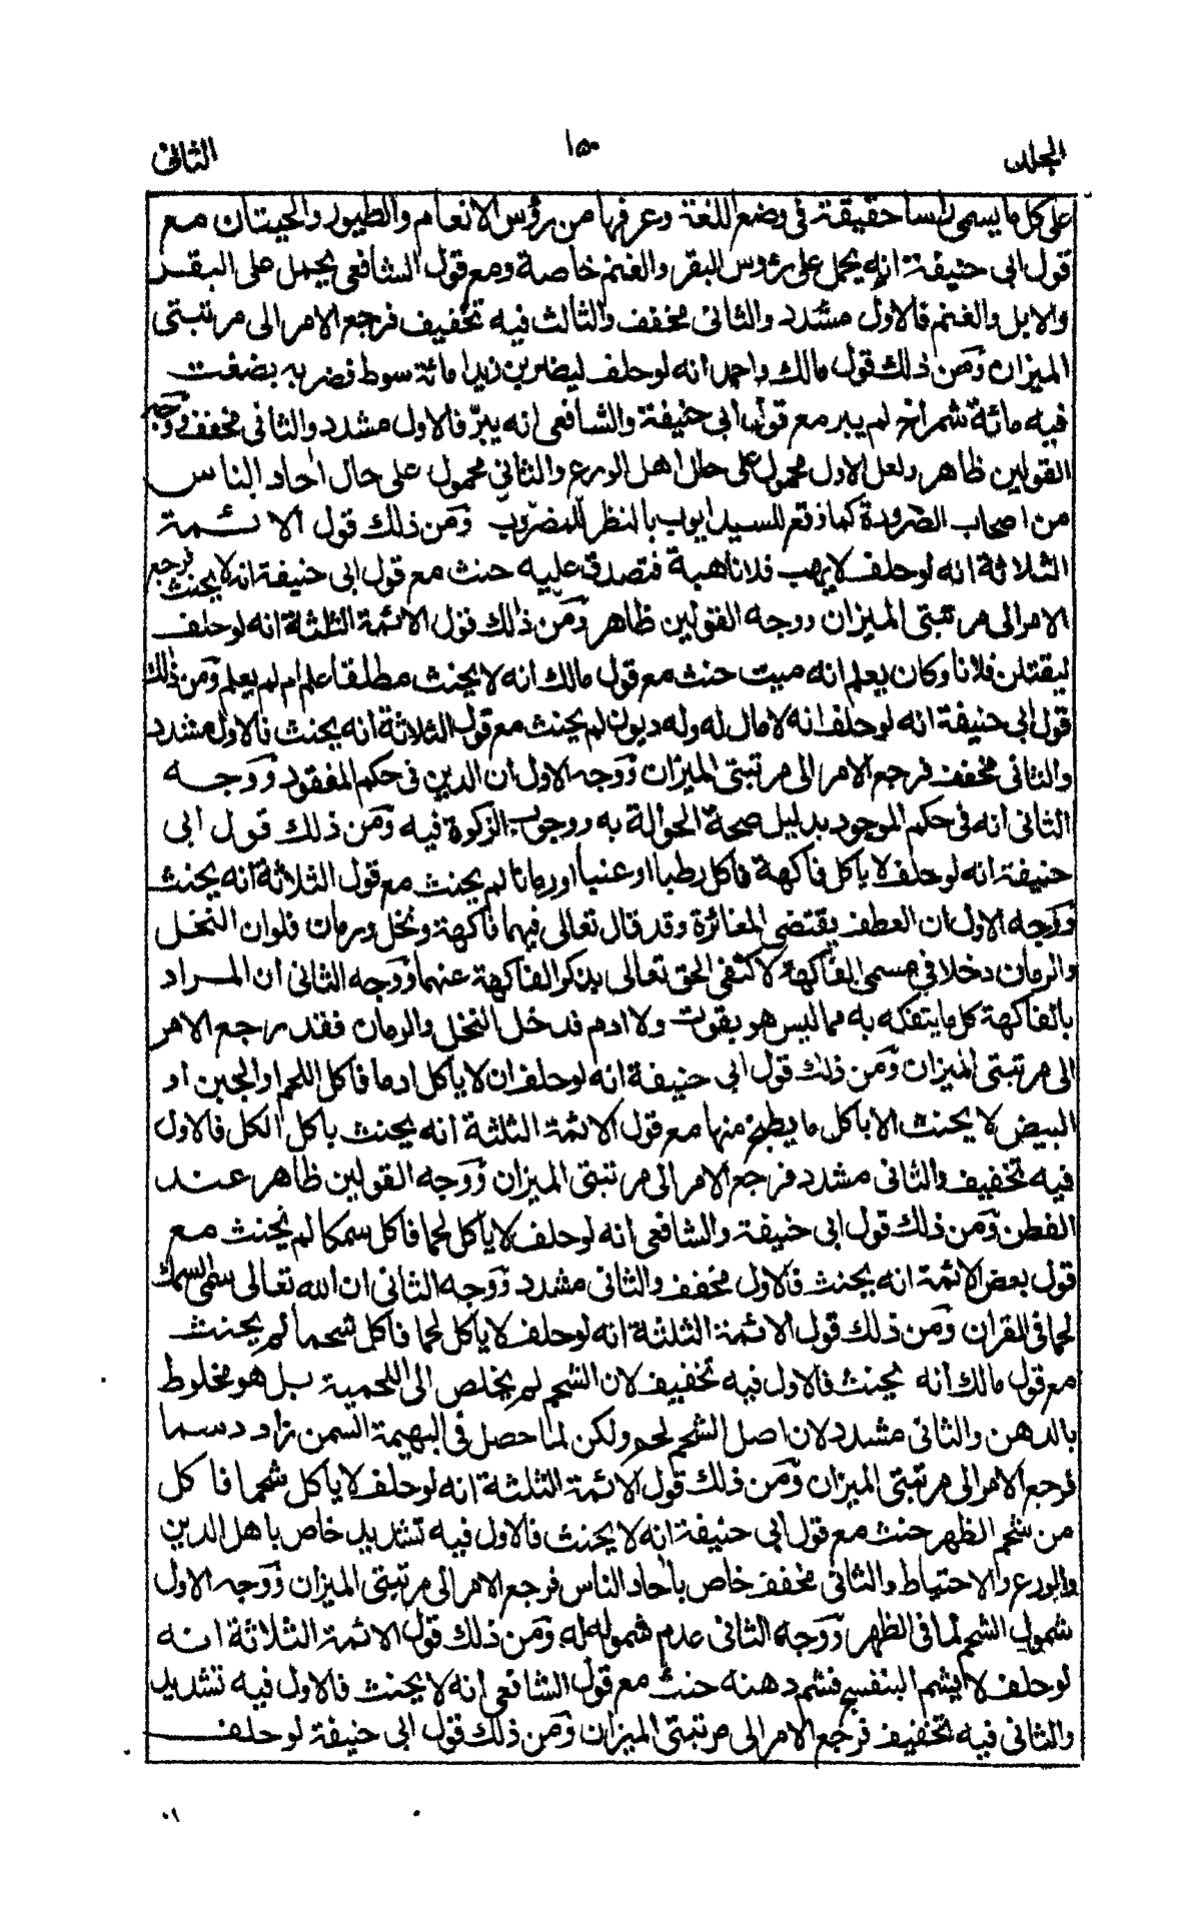 المجلد
١٥٠
الثانى
على كل ما يسمى راسا حقيقة فى وضع اللغة وعرفها من رؤس الانعام والطيور والحيتان مع
قول ابى حنيفة انه يحمل على رؤوس البقر والغنم خاصة ومع قول الشافعى يحمل على البقر
والابل والغنم فالاول مشدد والثانى مخفف والثالث فيه تخفيف فرجع الامر الى مرتبتى
الميزان ومن ذلك قول مالك واحمد انه لو حلف ليضربن زيدا مائة سوط فضربه بضغث
فيه مائة شمراخ لم يبر مع قول ابى حنيفة والشافعى انه يبرّ فالاول مشدد والثانى مخفف ووجه
القولين ظاهر ولعل الاول محمول على حال اهل الورع والثانى محمول على حال احاد الناس
من اصحاب الضرورة كما وقع للسيد ايوب بالنظر للمضروب ومن ذلك قول الائمة
الثلاثة انه لو حلف لا يهب فلانا هبة فتصدق عليه حنث مع قول ابى حنيفة انه لا يحنث فرجع
الامر الى مرتبتى الميزان ووجه القولين ظاهر ومن ذلك قول الائمة الثلثة انه لو حلف
ليقتلن فلانا وكان يعلم انه ميت حنث مع قول مالك انه لا يحنث مطلقا علم ام لم يعلم ومن ذلك
قول ابى حنيفة انه لو حلف انه لا مال له وله ديون لم يحنث مع قول الثلاثة انه يحنث فالاول مشدد
والثانى مخفف فرجع الامر الى مرتبتى الميزان ووجه الاول ان الدين فى حكم المفقود ووجه
الثانى انه فى حكم الموجود بدليل صحة الحوالة به ووجوب الزكوة فيه ومن ذلك قول ابى
حنيفة انه لو حلف لا ياكل فاكهة فاكل رطبا او عنبا او رمانا لم يحنث مع قول الثلاثة انه يحنث
ووجه الاول ان العطف يقتضى المغائرة وقد قال تعالى فيهما فاكهة ونخل ورمان فلو ان النخل
والرمان دخلا فى مسمى الفاكهة لاكتفى الحق تعالى بذكر الفاكهة عنهما ووجه الثانى ان المراد
بالفاكهة كل ما يتفكه به مما ليس هو بقوت ولا ادم فدخل النخل والرمان فقد رجع الامر
الى مرتبتى الميزان ومن ذلك قول ابى حنيفة انه لو حلف ان لا ياكل ادما فاكل اللحم او الجبن او
البيض لا يحنث الا باكل ما يطبخ منها مع قول الائمة الثلثة انه يحنث باكل الكل فالاول
فيه تخفيف والثانى مشدد فرجع الامر الى مرتبتى الميزان ووجه القولين ظاهر عند
الفطن ومن ذلك قول ابى حنيفة والشافعى انه لو حلف لا ياكل لحما فاكل سمكا لم يحنث مع
قول بعض الائمة انه يحنث فالاول مخفف والثانى مشدد ووجه الثانى ان الله تعالى سمى السمك
لحما فى القران ومن ذلك قول الائمة الثلثة انه لو حلف لا ياكل لحما فاكل شحما لم يحنث
مع قول مالك انه يحنث فالاول فيه تخفيف لان الشحم لم يخلص الى اللحمية بل هو مخلوط
بالدهن والثانى مشدد لان اصل الشحم لحم ولكن لما حصل فى البهيمة السمن زاد دسما
فرجع الامر الى مرتبتى الميزان ومن ذلك قول الائمة الثلثة انه لو حلف لا ياكل شحما فاكل
من شحم الظهر حنث مع قول ابى حنيفة انه لا يحنث فالاول فيه تشديد خاص باهل الدين
والورع والاحتياط والثانى مخفف خاص باحاد الناس فرجع الامر الى مرتبتى الميزان ووجه الاول
شمول الشحم لما فى الظهر ووجه الثانى عدم شموله له ومن ذلك قول الائمة الثلاثة انه
لو حلف لا يشم البنفسج فشم دهنه حنث مع قول الشافعى انه لا يحنث فالاول فيه تشديد
والثانى فيه تخفيف فرجع الامر الى مرتبتى الميزان ومن ذلك قول ابى حنيفة لو حلف